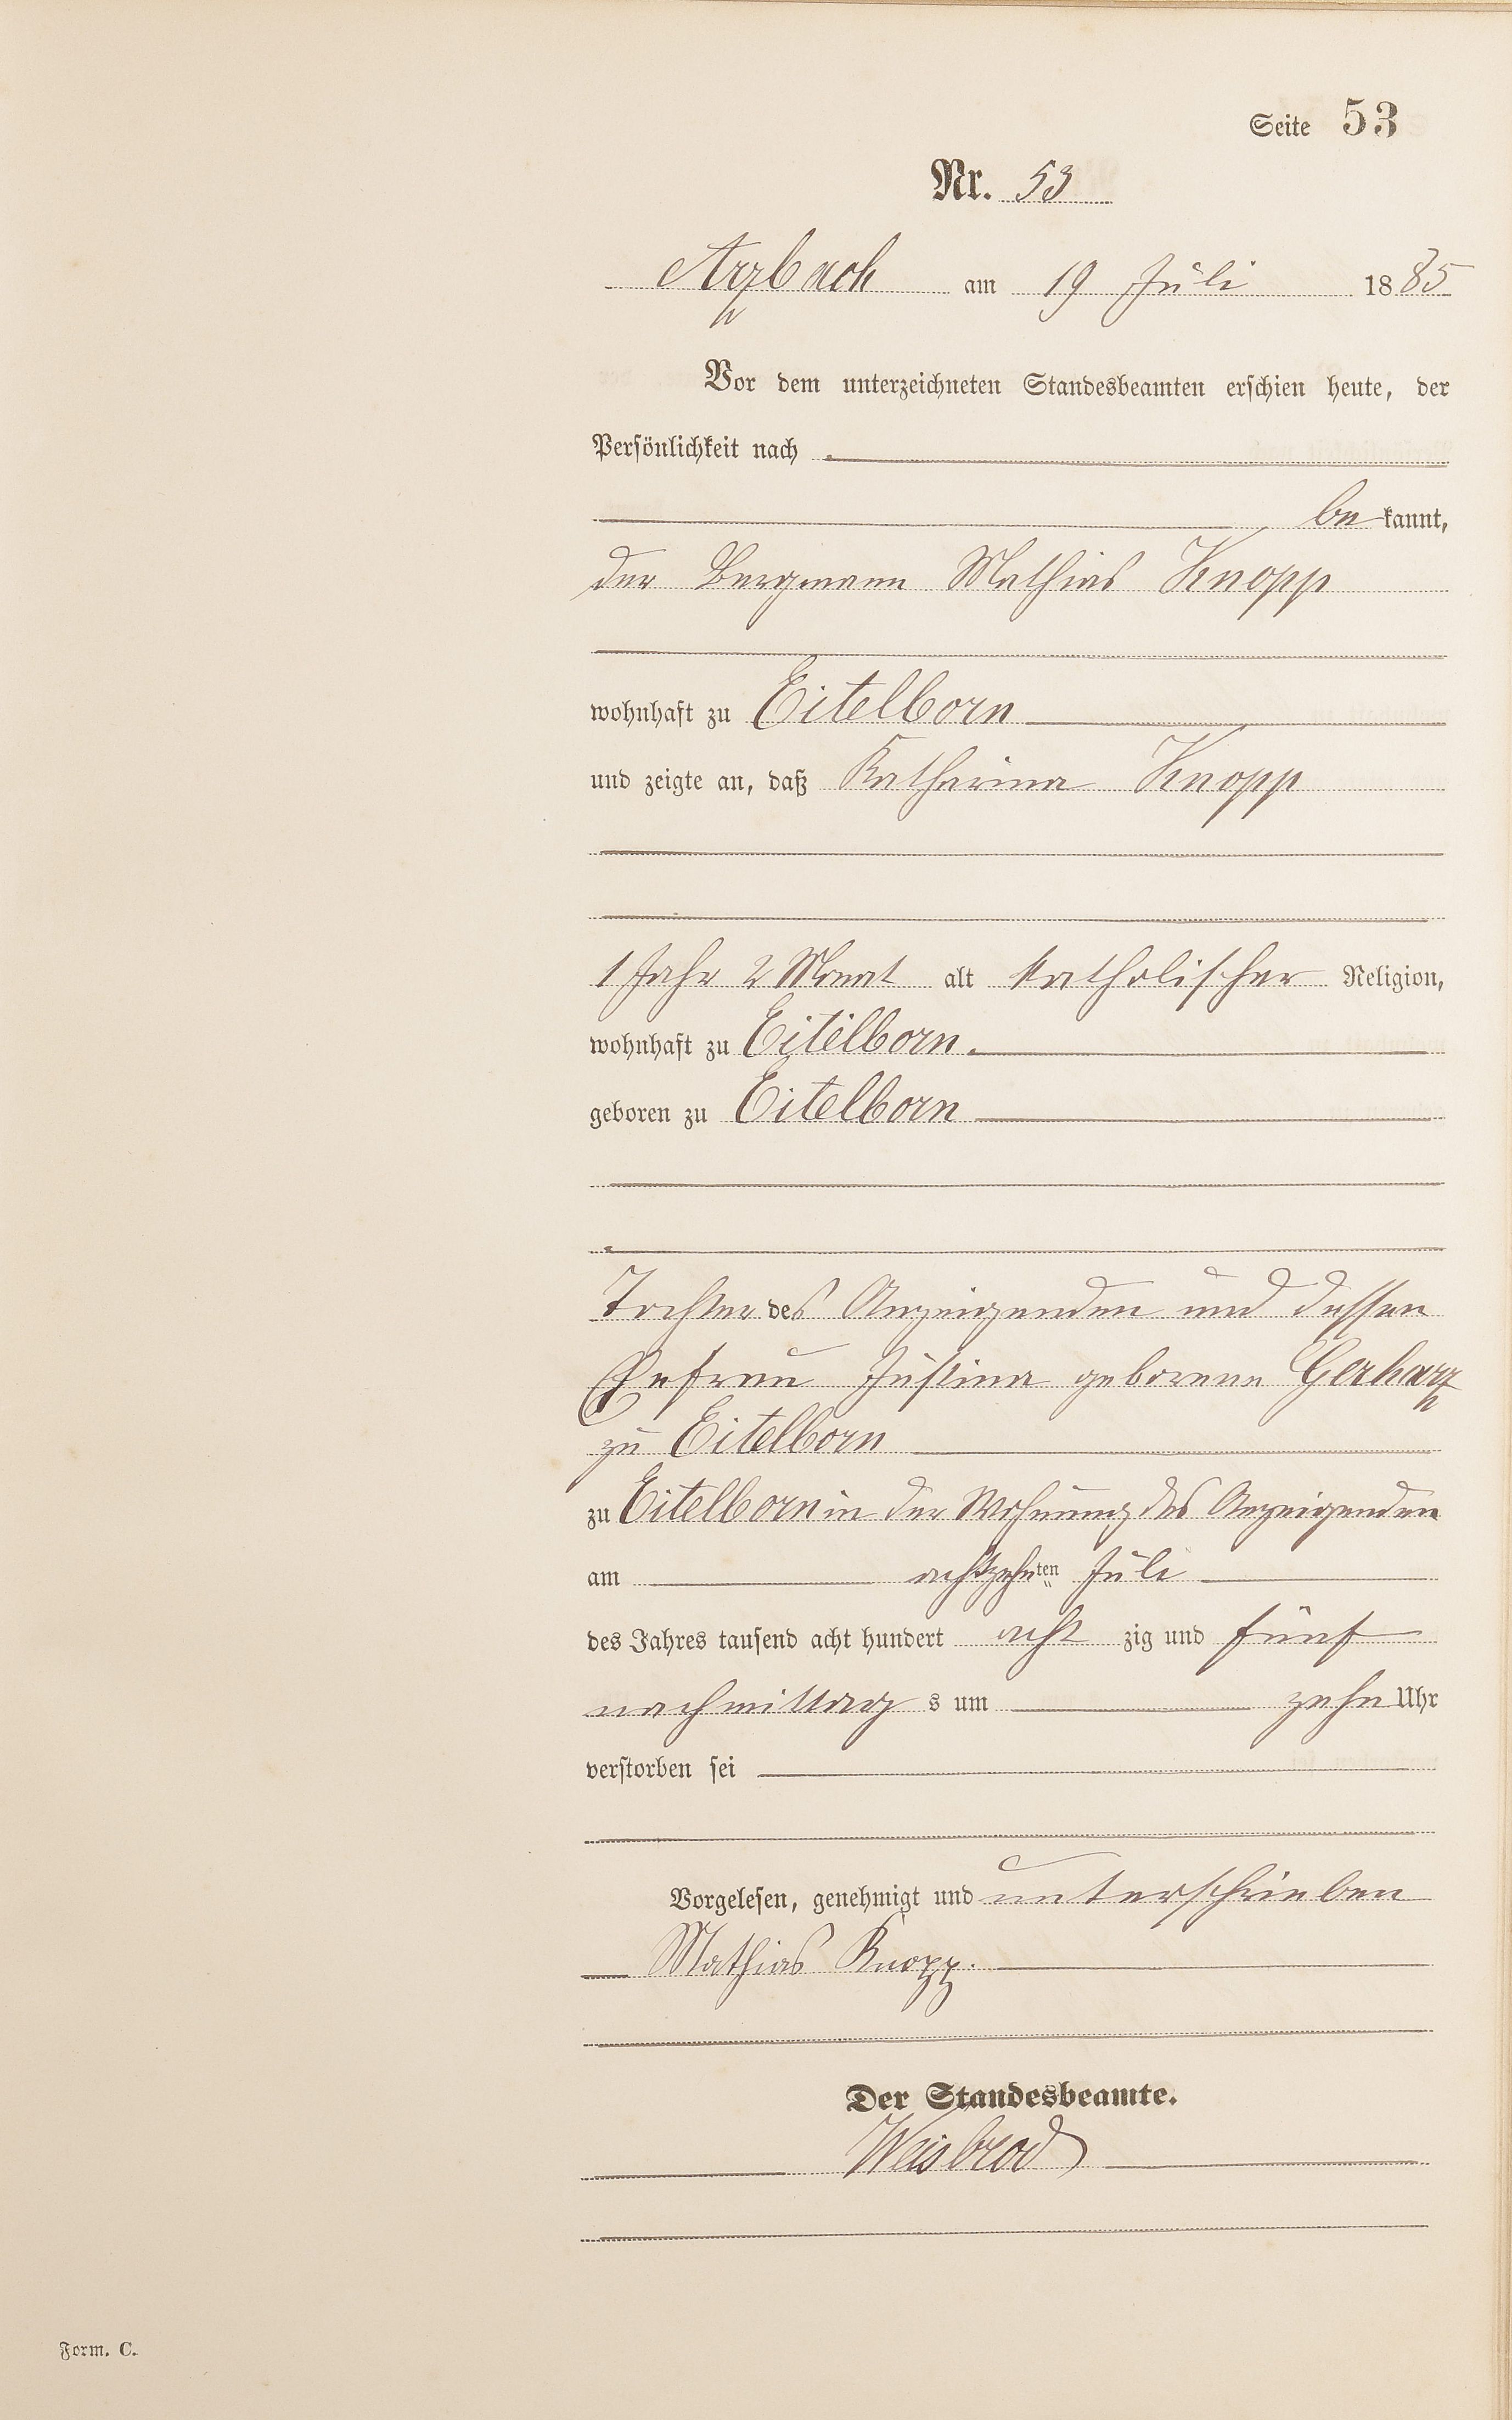 Seite 53
Nr. 53
Arzbach am 19 Juli 1885
Vor dem unterzeichneten Standesbeamten erschien heute, der
Persönlichkeit nach
bekannt,
der Bergmann Mathias Knopp
wohnhaft zu Eitelborn
und zeigte an, daß Katharina Knopp
1 Jahr 2 Monat alt katholischer Religion,
wohnhaft zu Eitelborn.
geboren zu Eitelborn
Tochter des Anzeigenden und dessen
Ehefrau Justina geborene Gerharz
zu Eitelborn
zu Eitelborn in der Wohnung des Anzeigenden
am achtzehnten Juli
des Jahres tausend acht hundert acht zig und fünf
nachmittag s um zehn Uhr
verstorben sei
Vorgelesen, genehmigt und unterschrieben
Mathias Knopp.
Der Standesbeamte.
Weisbrod
Form. C.